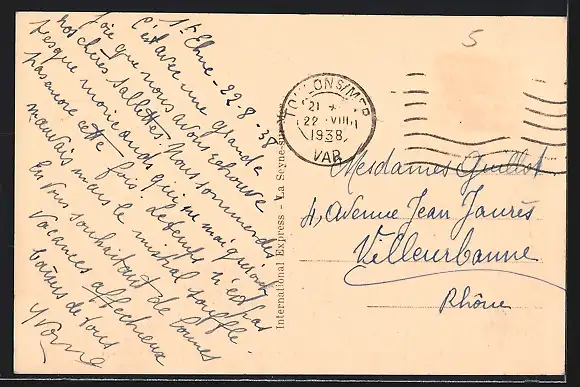 St Elme - 22-8-38
C'est avec une grande
joie que nous avons retrouvé
nos chères Sablettes. Nous sommes des
presque moricauds qui ne maigriront
pas encore cette fois. Le temps n'est pas
mauvais mais le mistral souffle.
En vous souhaitant de bonnes
vacances affectueux
baisers de tous
Yvonne
International Express - La Seyne-sur-Mer
TOULON S/MER
21
22 VIII
1938
VAR
5
Mesdames Guillot
4, Avenue Jean Jaurès
Villeurbanne
Rhône